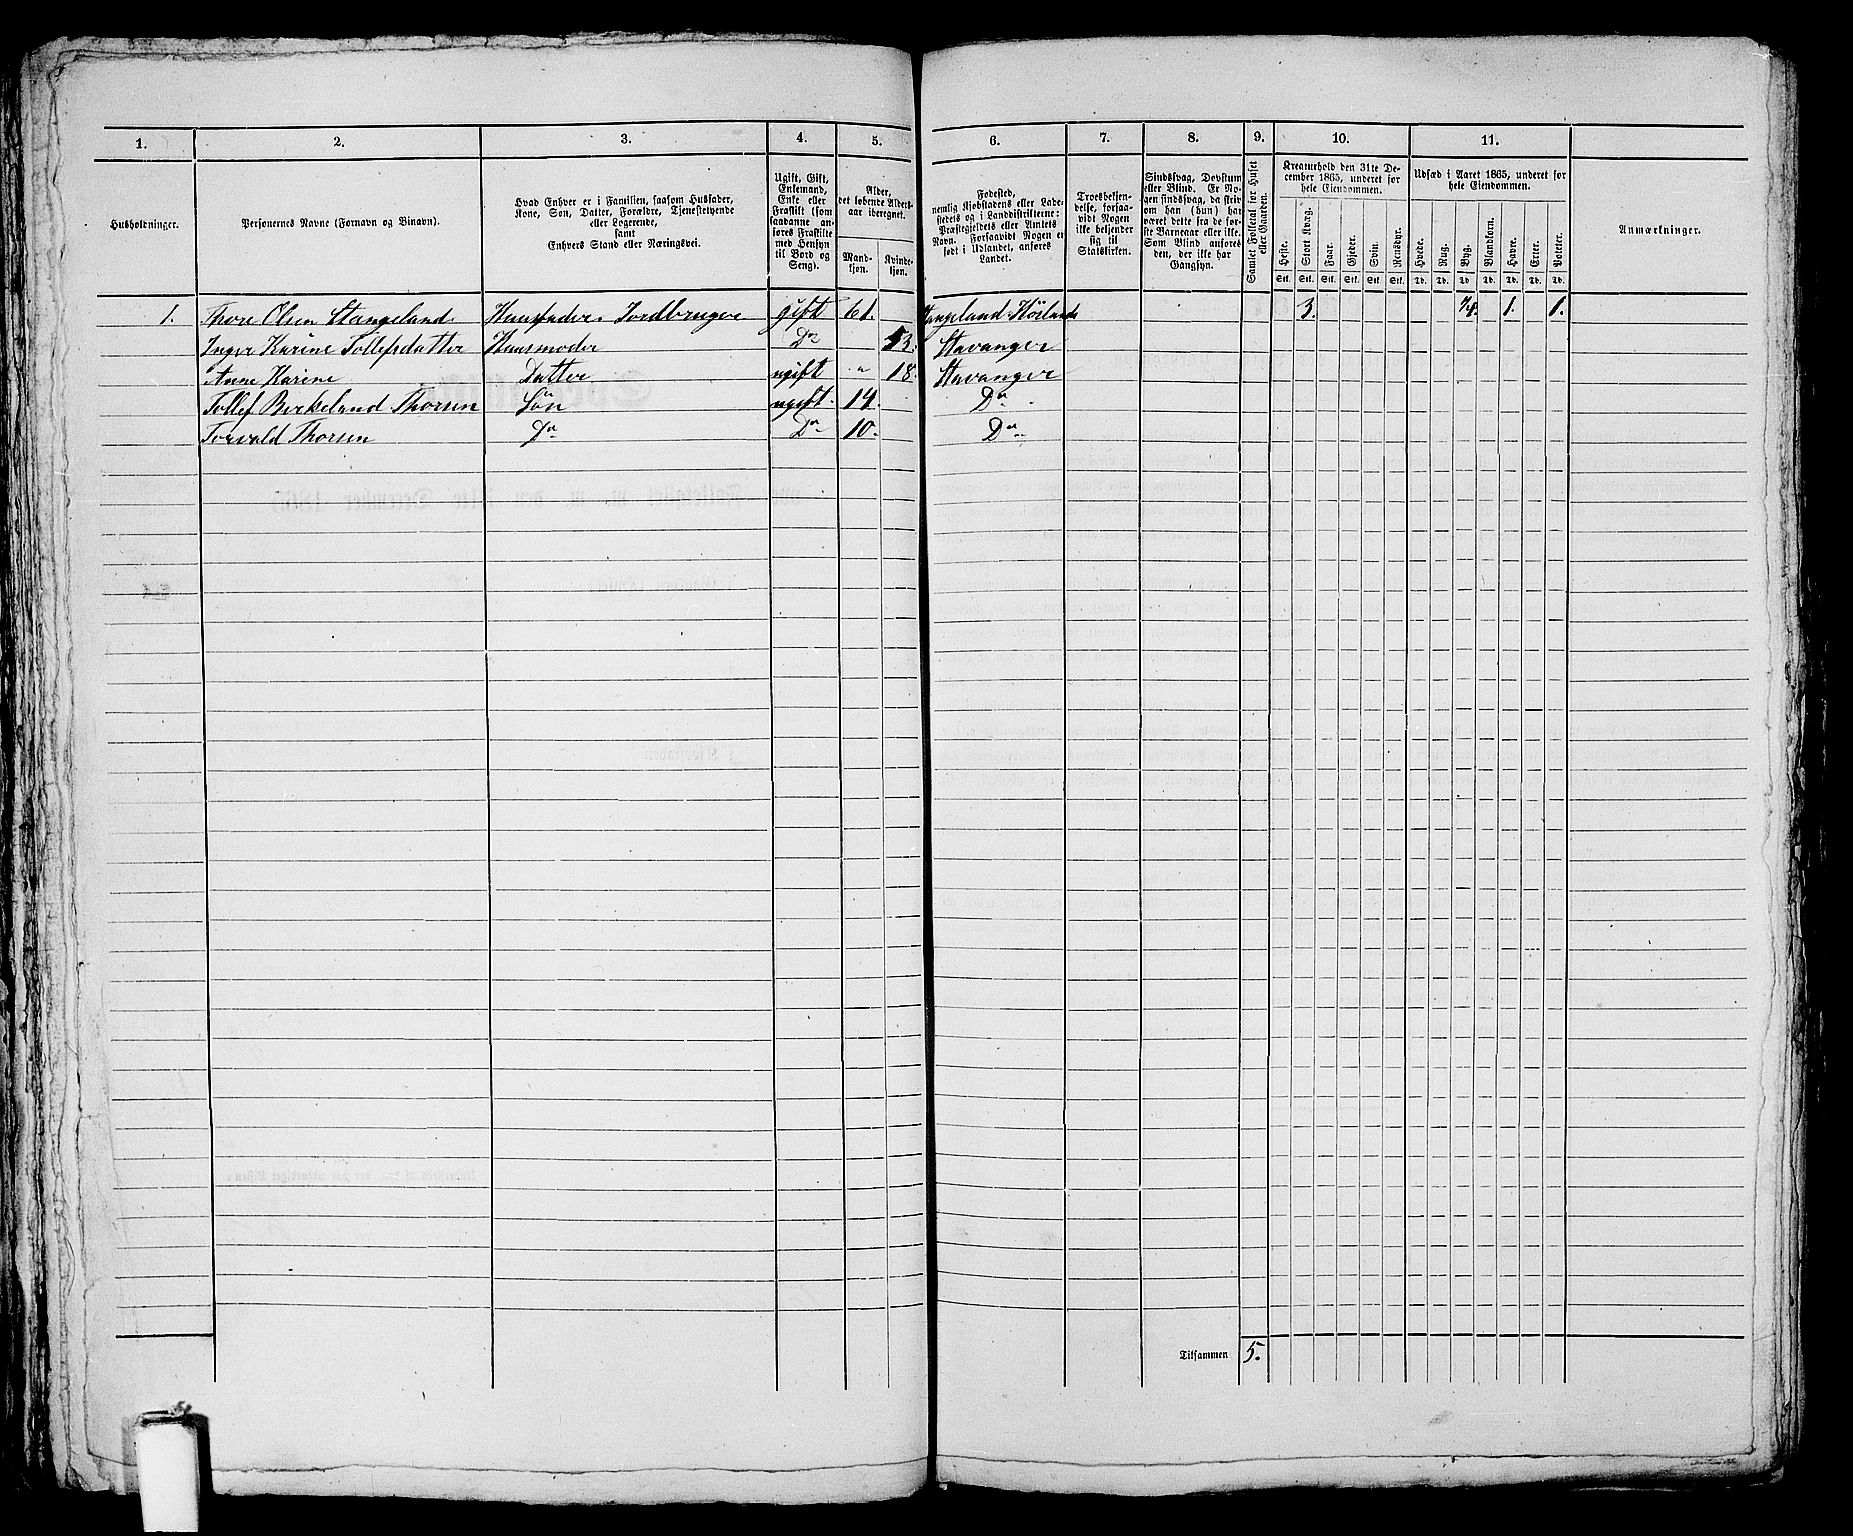 1. 2. 3. 4. 5. 6. 7. 8. 9. 10. 11.
Husholdninger.
Personernes Navne (Fornavn og Binavn).
Hvad Enhver er i Familien, saasom Husfader,
Kone, Søn, Datter, Forældre, Tjenestetyende
eller Logerende,
samt
Enhvers Stand eller Næringsvei.
Ugift, Gift,
Enkemand,
Enke eller
Fraskilt (som
saadanne an-
føres Fraskilte
med Hensyn
til Bord og
Seng).
Alder,
det løbende Alders-
aar iberegnet.
Mand-
kjøn.
Kvinde-
kjøn.
Fødested,
nemlig Kjøbstadens eller Lade-
stedets og i Landdistrikterne:
Præstegjeldets eller Amtets
Navn. Forsaavidt Nogen er
født i Udlandet, anføres
Landet.
Troesbekjen-
delse, forsaa-
vidt Nogen
ikke bekjender
sig til
Statskirken.
Sindssvag, Døvstum
eller Blind. Er No-
gen sindssvag, da skriv
om han (hun) har
været dette fra de før-
ste Barneaar eller ikke.
Som Blind anføres
den, der ikke har
Gangsyn.
Samlet Folketal for Huset
eller Gaarden.
Kreaturhold den 31te De-
cember 1865, underet for
hele Eiendommen.
Heste. Stort Kvæg. Faar. Gjeder. Svin. Rensdyr.
Stk. Stk. Stk. Stk. Stk. Stk.
Udsæd i Aaret 1865, underet for
hele Eiendommen.
Hvede. Rug. Byg. Blandkorn. Havre. Erter. Poteter.
Td. Td. Td. Td. Td. Td. Td.
Anmærkninger.
1. Thore Olsen Stangeland Huusfader Jordbruger gift 61. Høiland 3. 1. 1.
Inger Karine Tollefsdatter Huusmoder Do 53. Stavanger
Anne Karine Datter ugift " 18. Stavanger
Tollef Birkeland Thorsen Søn ugift 14. Do
Torvald Thorsen Do Do 10. Do
Tilsammen 5.